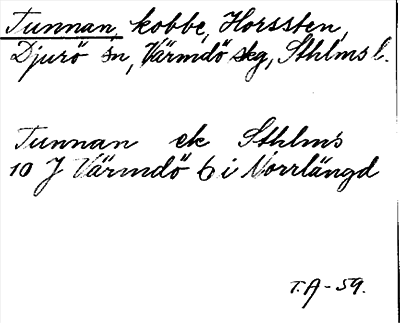 Tunnan, kobbe, Horssten,
Djurö sn, Värmdö skg, Sthlms l.
Tunnan ek Sthlms
10 J Värmdö 6 i Norrlängd
T.A-59.